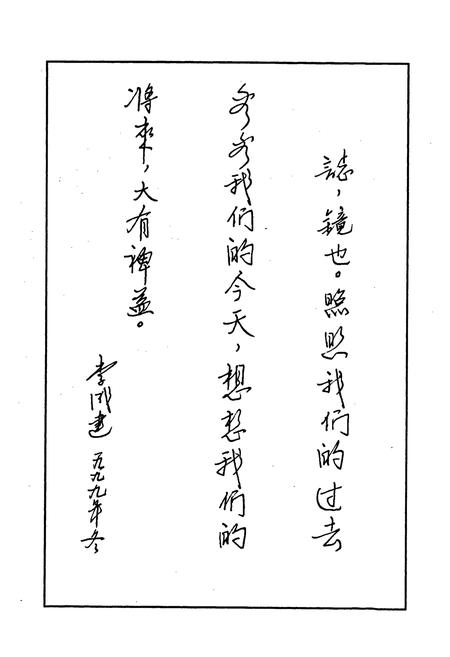 誌，鏡也。照照我们的过去
看看我们的今天，想想我们的
将來，大有裨益。
李成建 一九九九年冬